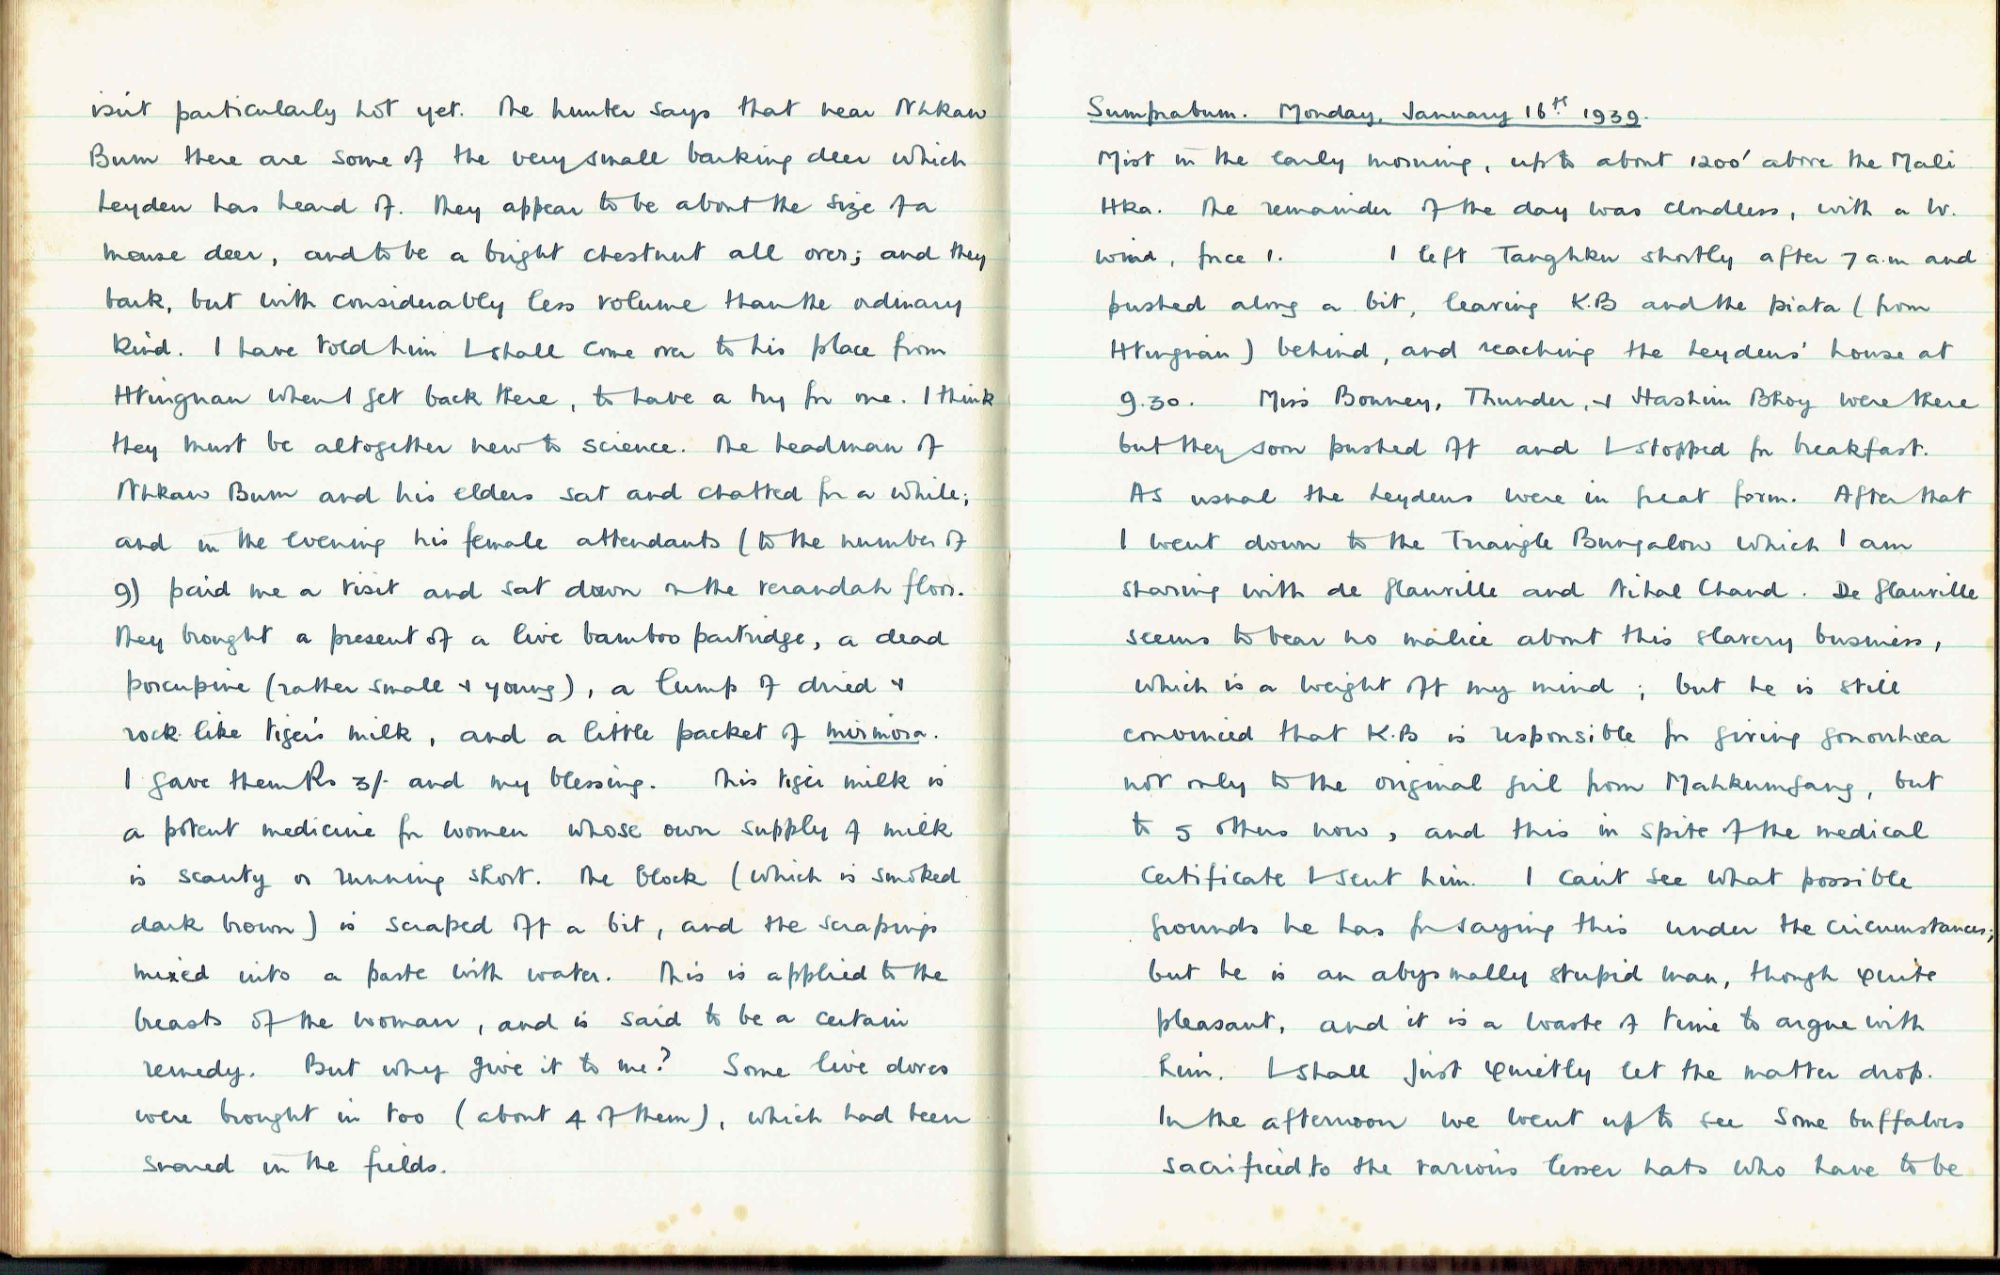 isn't particularly hot yet. The hunter says that near Nhkaw
Bum there are some of the very small barking deer which
Leyden has heard of. They appear to be about the size of a
mouse deer, and to be a bright chestnut all over; and they
bark, but with considerably less volume than the ordinary
kind. I have told him I shall come over to his place from
Htingnan when I get back there, to have a try for one. I think
they must be altogether new to science. The headman of
Nhkaw Bum and his elders sat and chatted for a while;
and in the evening his female attendants (to the number of
9) paid me a visit and sat down on the verandah floor.
They brought a present of a live bamboo partridge, a dead
porcupine (rather small & young), a lump of dried &
rock-like tiger's milk, and a little packet of mirmira.
I gave them Rs 3/- and my blessing. This tiger milk is
a potent medicine for women whose own supply of milk
is scanty or running short. The block (which is smoked
dark brown) is scraped off a bit, and the scrapings
mixed into a paste with water. This is applied to the
breasts of the woman, and is said to be a certain
remedy. But why give it to me? Some live doves
were brought in too (about 4 of them), which had been
snared in the fields.
Sumprabum. Monday, January 16th 1939.
Mist in the early morning, up to about 1200' above the Mali
Hka. The remainder of the day was cloudless, with a W.
wind, force 1. I left Tanghku shortly after 7 a.m and
pushed along a bit, leaving K.B and the piata (from
Htingnan) behind, and reaching the Leydens' house at
9.30. Miss Bonney, Thunder, & Hashim Bhoy were there
but they soon pushed off and I stopped for breakfast.
As usual the Leydens were in great form. After that
I went down to the Triangle Bungalow which I am
sharing with de Glanville and Nihal Chand. De Glanville
seems to bear no malice about this slavery business,
which is a weight off my mind; but he is still
convinced that K.B is responsible for giving gonorrhoea
not only to the original girl from Mahkumgang, but
to 5 others now, and this in spite of the medical
certificate I sent him. I can't see what possible
grounds he has for saying this under the circumstances;
but he is an abysmally stupid man, though quite
pleasant, and it is a waste of time to argue with
him. I shall just quietly let the matter drop.
In the afternoon we went up to see some buffaloes
sacrificed to the various lesser nats who have to be